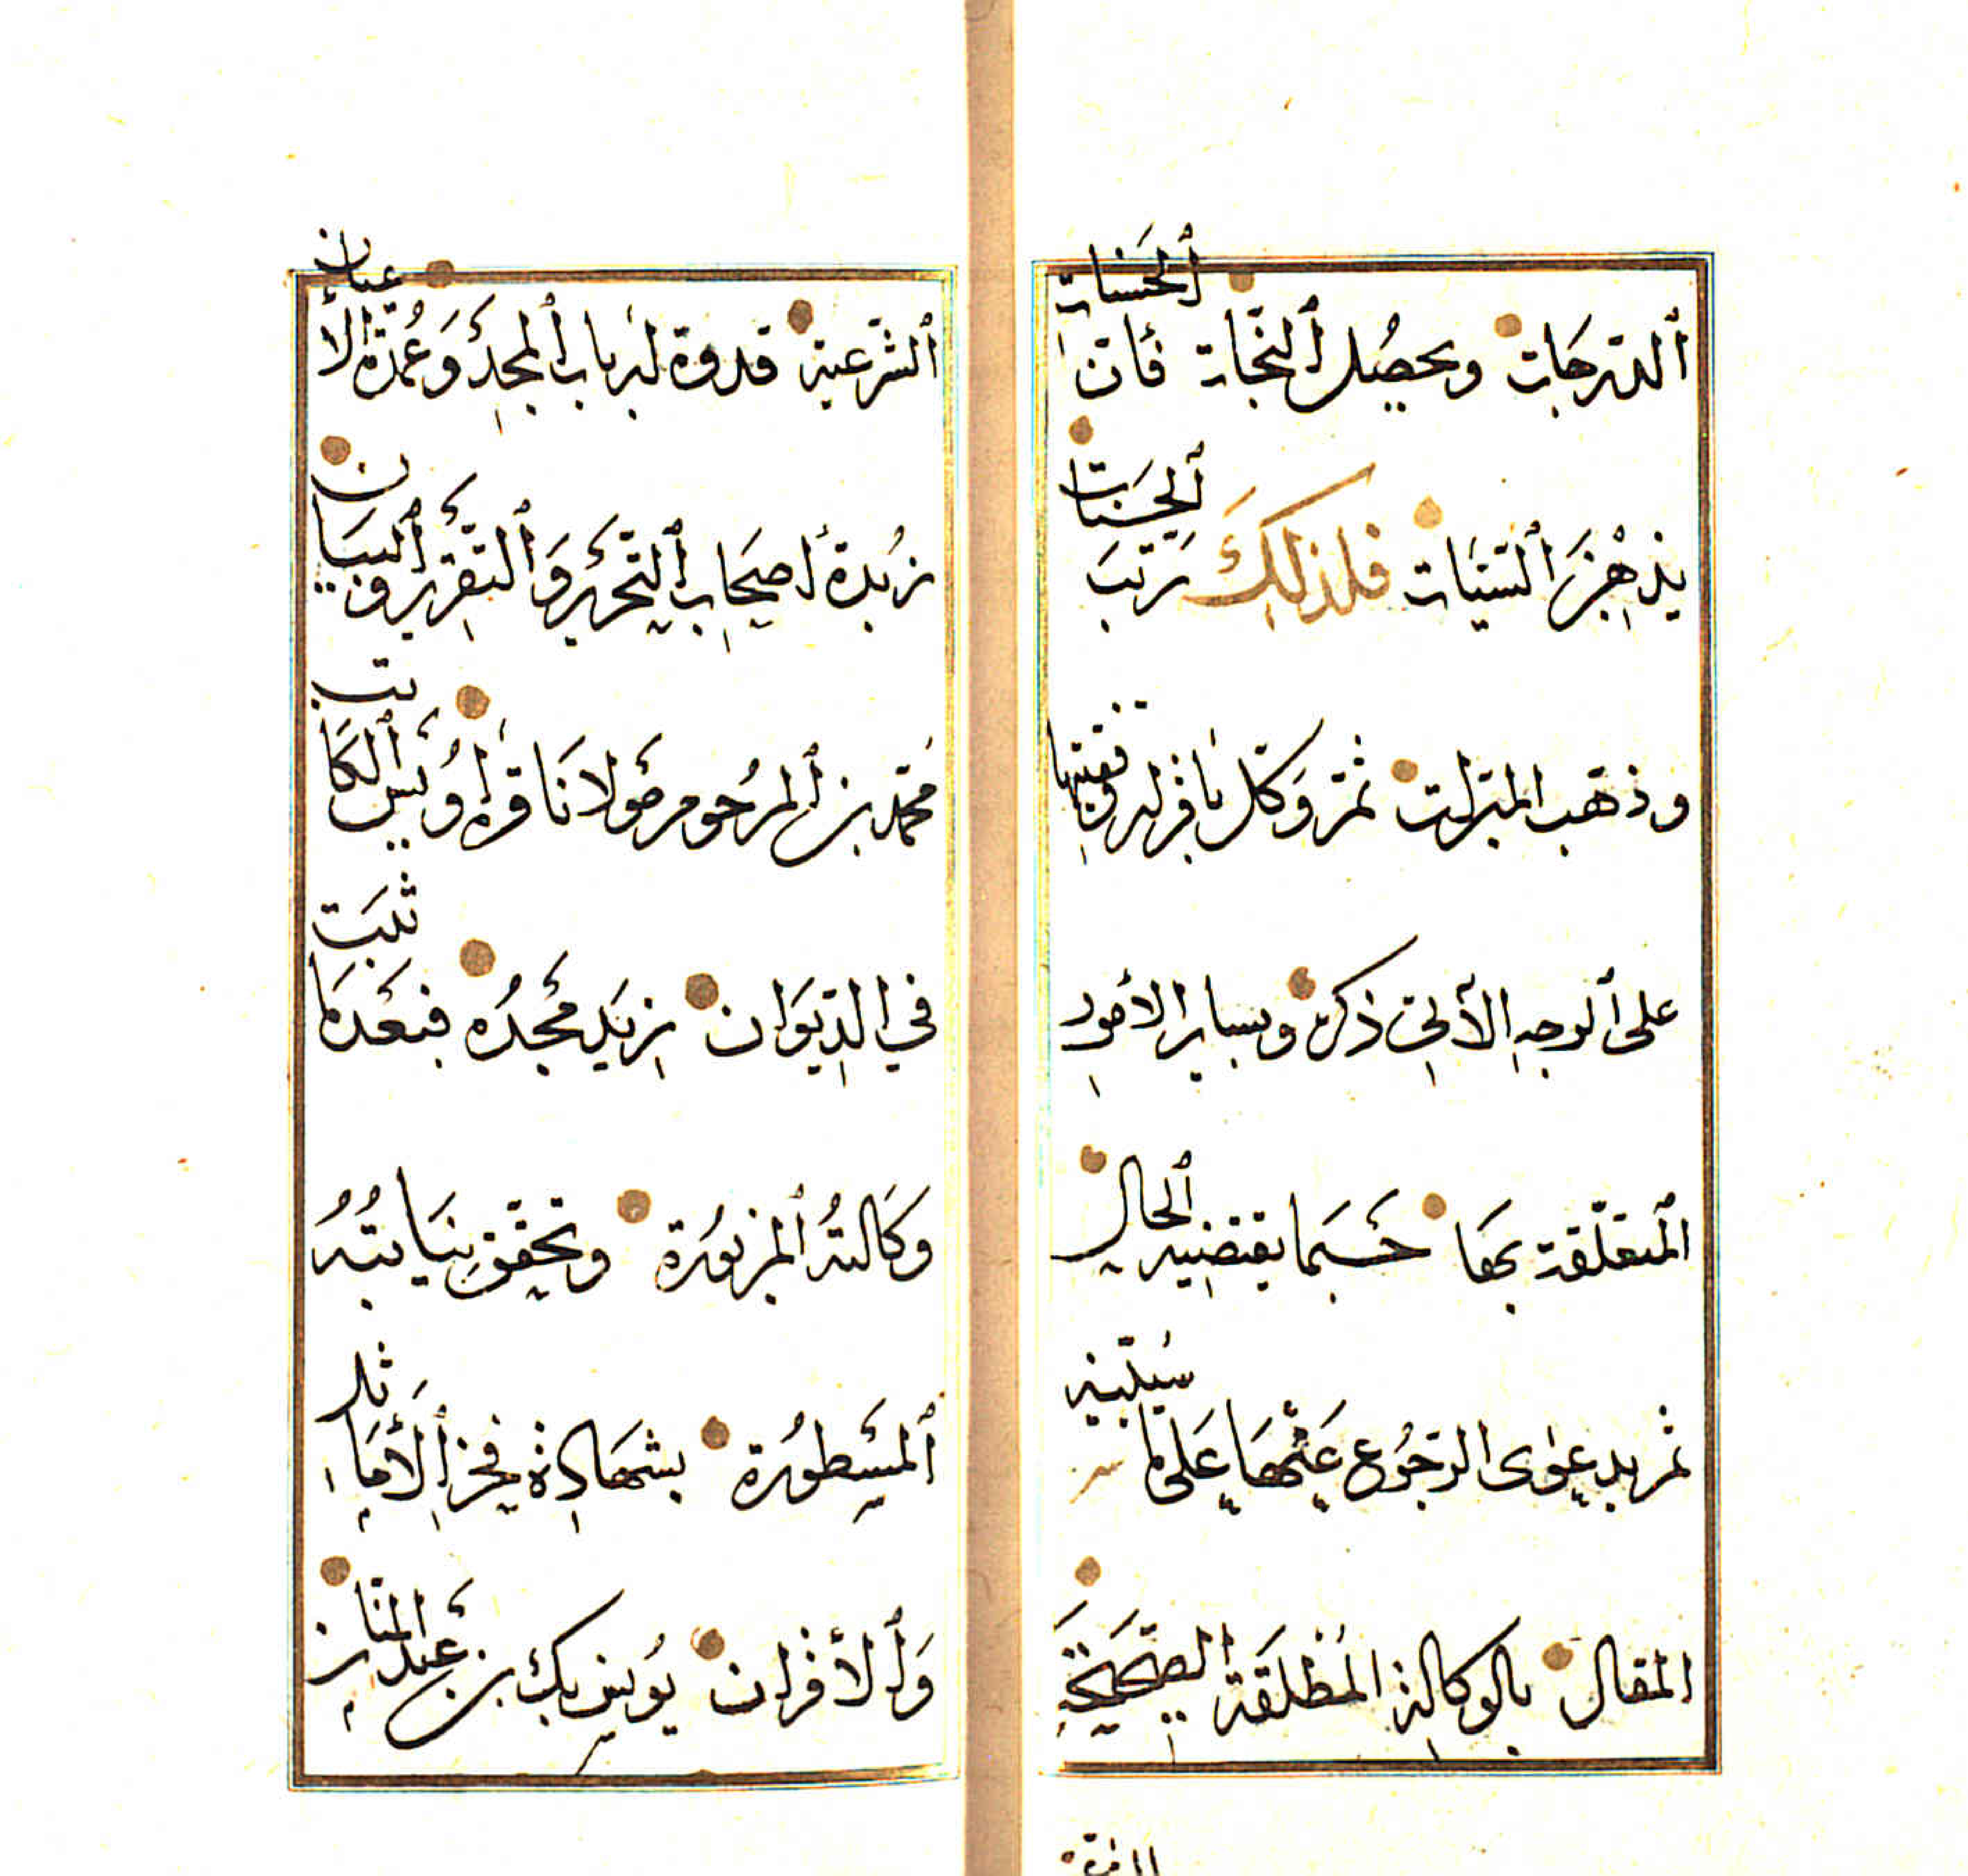 الدرجات وتحصيل النجاة فان الحسنات
يذهبن السيئات فلذلك رتب الحسنات
وذهب المبرات ثم وكل نافر لوقفيتها
على الوجه الآتي ذكره وبساير الأمور
المتعلقة بها حسبما يقتضيه الحال
ثم بدعوى الرجوع عنها على ما سيبينه
المقال بالوكالة المطلقة الصحيحة
الشرعية قدوة ارباب المجد وعمدة الأعيان
زبدة اصحاب التحرير والتقرير والبيان
محمد بن المرحوم مولانا قرا اويس الكاتب
في الديوان زيد مجده فبعد ما ثبت
وكالته المزبورة وتحقق نيابته
المسطورة بشهادة فخر الأماثل
والأقران يونس بك بن عبد المنان